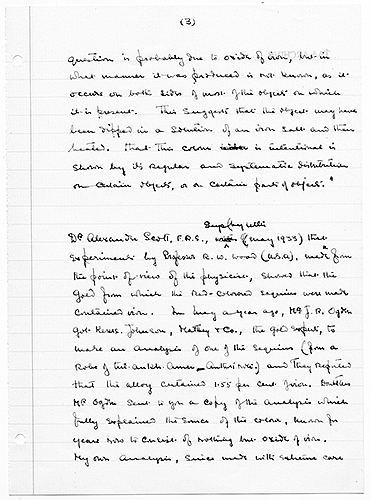 (3)
question is probably due to oxide of iron, but in
what manner it was produced is not known, as it
occurs on both sides of most of the objects on which
it is present. This suggests that the objects may have
been dipped in a solution of an iron salt and then
heated. That this colour is intentional is
shown by its regular and systematic distribution
on certain objects, or on certain parts of objects."
Dr Alexander Scott, F.R.S., (May 1933) that
experiments by Professor R. W. Wood (U.S.A), made from
the point of view of the physicist, showed that the
gold from which the Red-Colored sequins were made
contained iron. In May a year ago, Mr J. R. Ogden
got Messrs. Johnson, Matthey & Co., the gold experts, to
make an analysis of one of the sequins (from a
Robe of Tut-ankh-Amen and they reported
that the alloy contained 1.55 per cent of iron.
Mr Ogden sent to you a copy of the analysis which
fully explained the source of the colour, known for
years now to consist of nothing but oxide of iron.
My own analysis, since made with extreme care